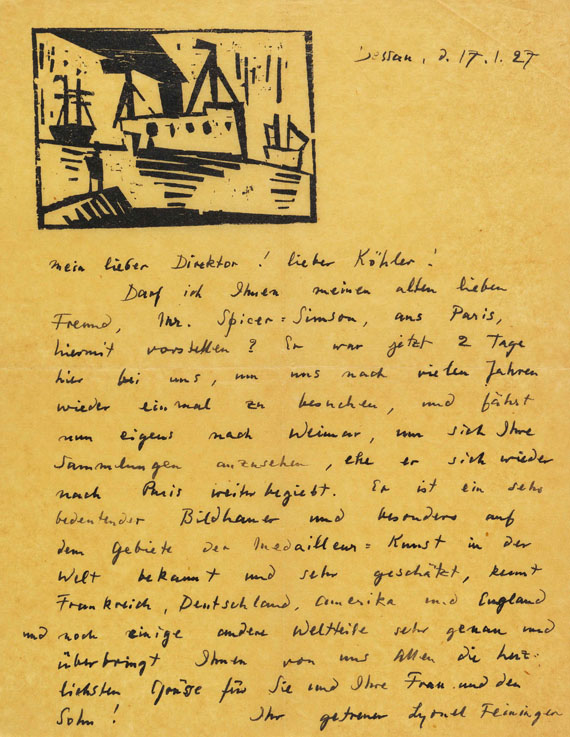 Dessau, d. 17.1.27
mein lieber Direktor! lieber Köhler!
Darf ich Ihnen meinen alten lieben
Freund, Mr. Spicer=Simson, aus Paris,
hiermit vorstellen? Er war jetzt 2 Tage
hier bei uns, um uns nach vielen Jahren
wieder einmal zu besuchen, und fährt
nun eigens nach Weimar, um sich Ihre
Sammlungen anzusehen, ehe er sich wieder
nach Paris weiterbegiebt. Er ist ein sehr
bedeutender Bildhauer und besonders auf
dem Gebiete der Medailleur=Kunst in der
Welt bekannt und sehr geschätzt, kennt
Frankreich, Deutschland, Amerika und England
und noch einige andere Weltteile sehr genau und
überbringt Ihnen von uns Allen die herz-
lichsten Grüsse für Sie und Ihre Frau und den
Sohn! Ihr getreuer Lyonel Feininger